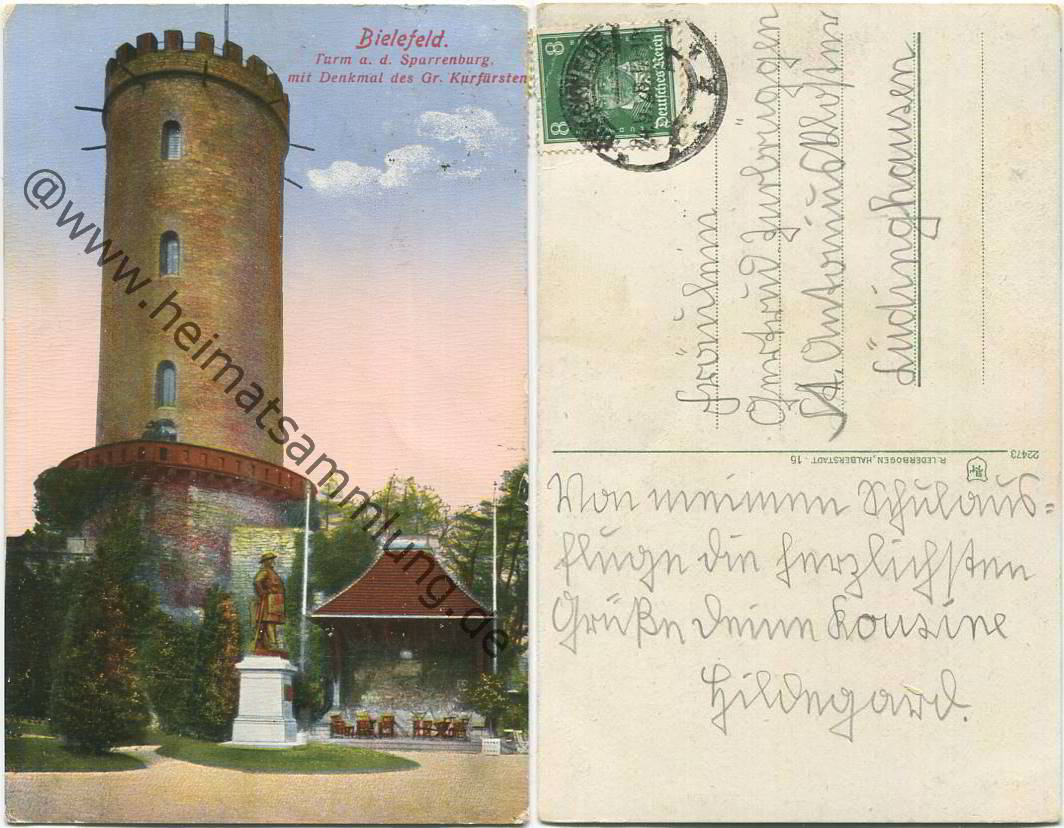 Bielefeld.
Turm a. d. Sparrenburg,
mit Denkmal des Gr. Kurfürsten
@www.heimatsammlung.de
8 8
Deutsches Reich
Fräulein
Gertrud Zurbrüggen
St. Antoniuskloster
Lüdinghausen
22473
R. LEDERBOGEN, HALBERSTADT - 15
Von meinem Schulaus-
fluge die herzlichsten
Grüße Deine Kousine
Hildegard.